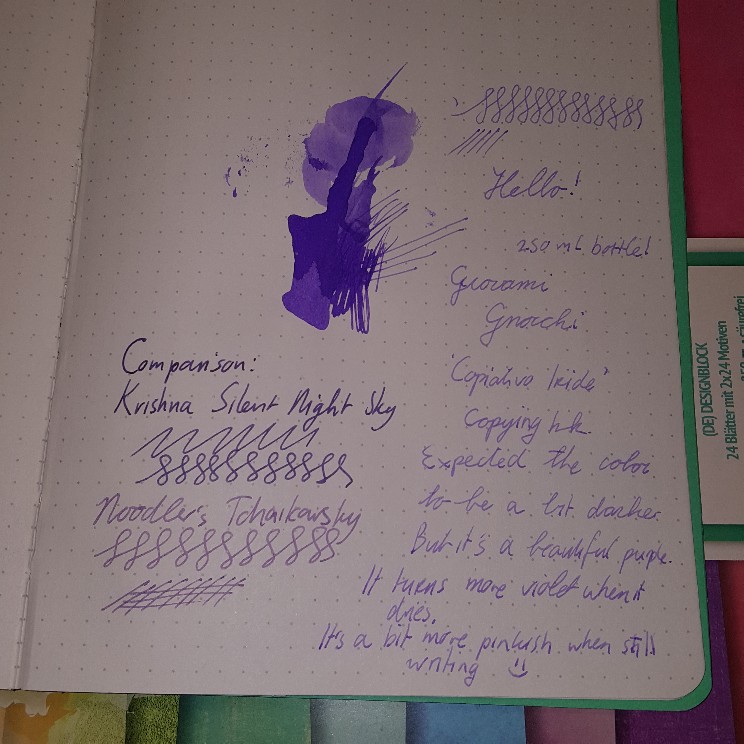 Hello!
250 ml bottle!
Giovanni
Gnocchi
"Copiativo Iride"
Copying Ink
Expected the color
to be a bit darker.
But it's a beautiful purple.
It turns more violet when it
dries.
It's a bit more pinkish when still
writing
Comparison:
Krishna Silent Night Sky
Noodler's Tchaikovsky
(DE) DESIGNBLOCK
24 Blätter mit 2x24 Motiven